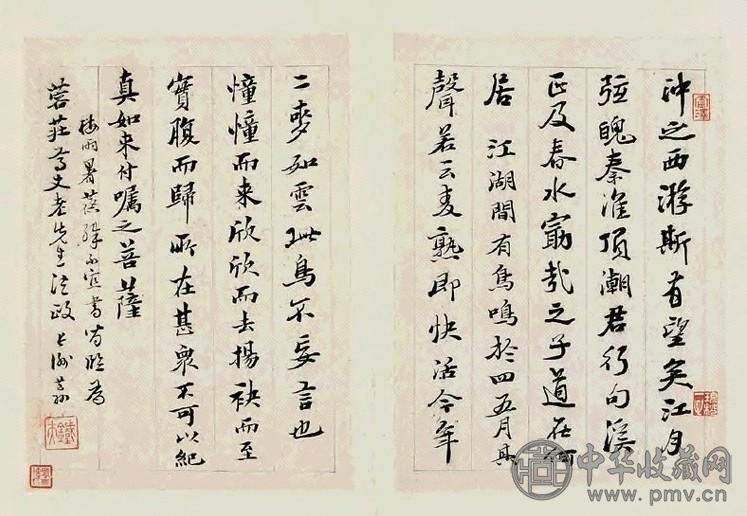 沖之西游斯有望矣江月
弦魄秦淮頂潮君行句溪
正及春水窮哉之子道在何
居 江湖間有鳥鳴於四五月其
聲若云麦熟即快活今年
二麥如雲此鳥不妄言也
憧憧而来欣欣而去揚袂而至
實腹而歸所在甚衆不可以紀
真如来付嘱之菩薩
梅雨暑蒸殊不宜書
老先生法政
中华收藏网
www.pmv.cn